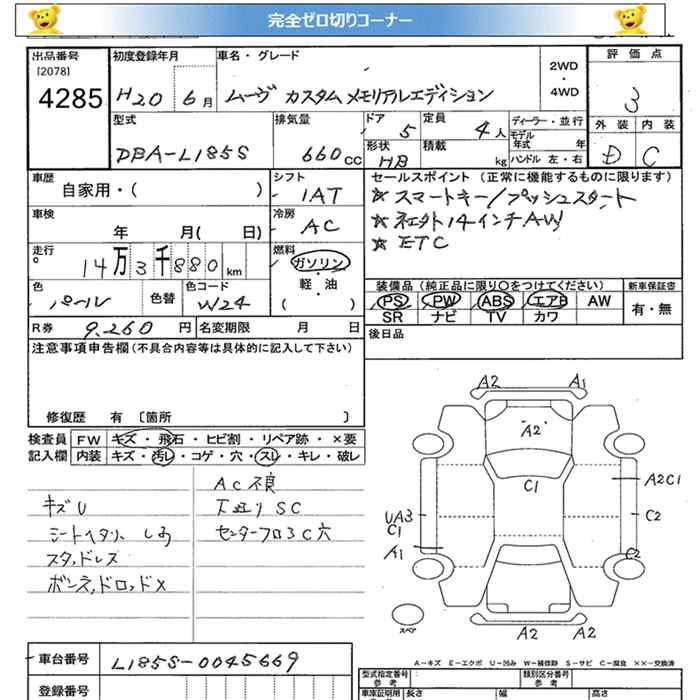 完全ゼロ切りコーナー
出品番号
[2078]
4285
初度登録年月
H20 6月
車名・グレード
ムーヴ カスタムメモリアルエディション
2WD
・
4WD
評価点
3
外装 内装
D C
型式
DBA-L185S
排気量
660cc
ドア
5
定員
4人
形状
HB
積載
kg
ディーラー・並行
モデル年式 年
ハンドル 左・右
車歴
自家用・( )
シフト
1AT
車検
年 月( 日)
冷房
AC
走行
14万3千880km
燃料
ガソリン
・
軽・油
( )
色
パール
色替
色コード
W24
R券 9,260円
名変期限 月 日
セールスポイント (正常に機能するものに限ります)
☆スマートキー/プッシュスタート
☆社外14インチAW
☆ETC
装備品(純正品に限り○をつけてください)
PS PW ABS エアB AW
SR ナビ TV カワ
新車保証書
有・無
後日品
注意事項申告欄(不具合内容等は具体的に記入して下さい)
修復歴 有 〔箇所 〕
検査員記入欄
FW キズ・飛石・ヒビ割・リペア跡・×要
内装 キズ・汚レ・コゲ・穴・スレ・キレ・破レ
キズU
シートヘタリ、シミ
スタッドレス
ボンネットロッド×
AC不良
下廻りSC
センターフロアC穴
A2 A1
A2
C1
A2C1
UA3
C1
C2
A1
C2
A2
A2 A2
スペア
A-キズ E-エクボ U-凹み W-補修跡 S-サビ C-腐食 ××-交換済
車台番号 L185S-0045669
登録番号
型式指定番号
参考
類別区分番号
参考
車庫証明用
長さ 幅 高さ